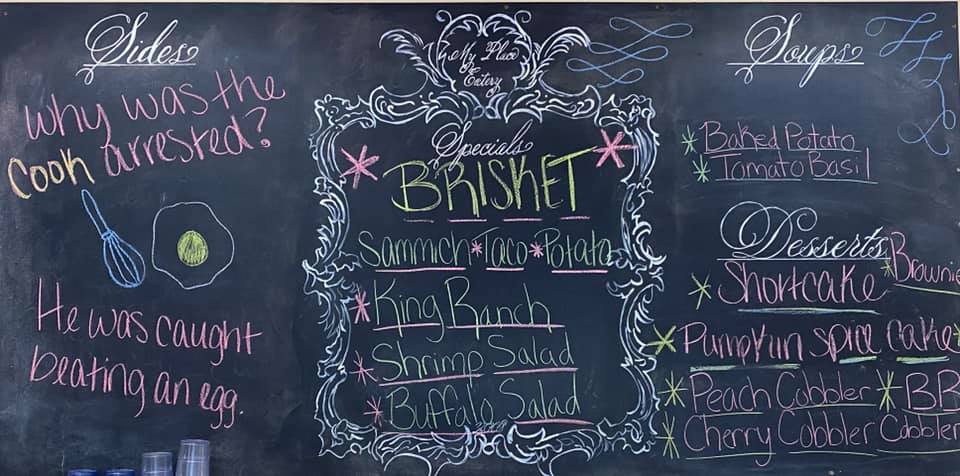 Sides
Why was the
cook arrested?
He was caught
beating an egg.
My Place
Eatery
Specials
BRISKET
Sammich * Taco * Potato
* King Ranch
* Shrimp Salad
* Buffalo Salad
Soups
* Baked Potato
* Tomato Basil
Desserts
* Brownie
* Shortcake
* Pumpkin spice cake *
* Peach Cobbler * BB
* Cherry Cobbler Cobbler